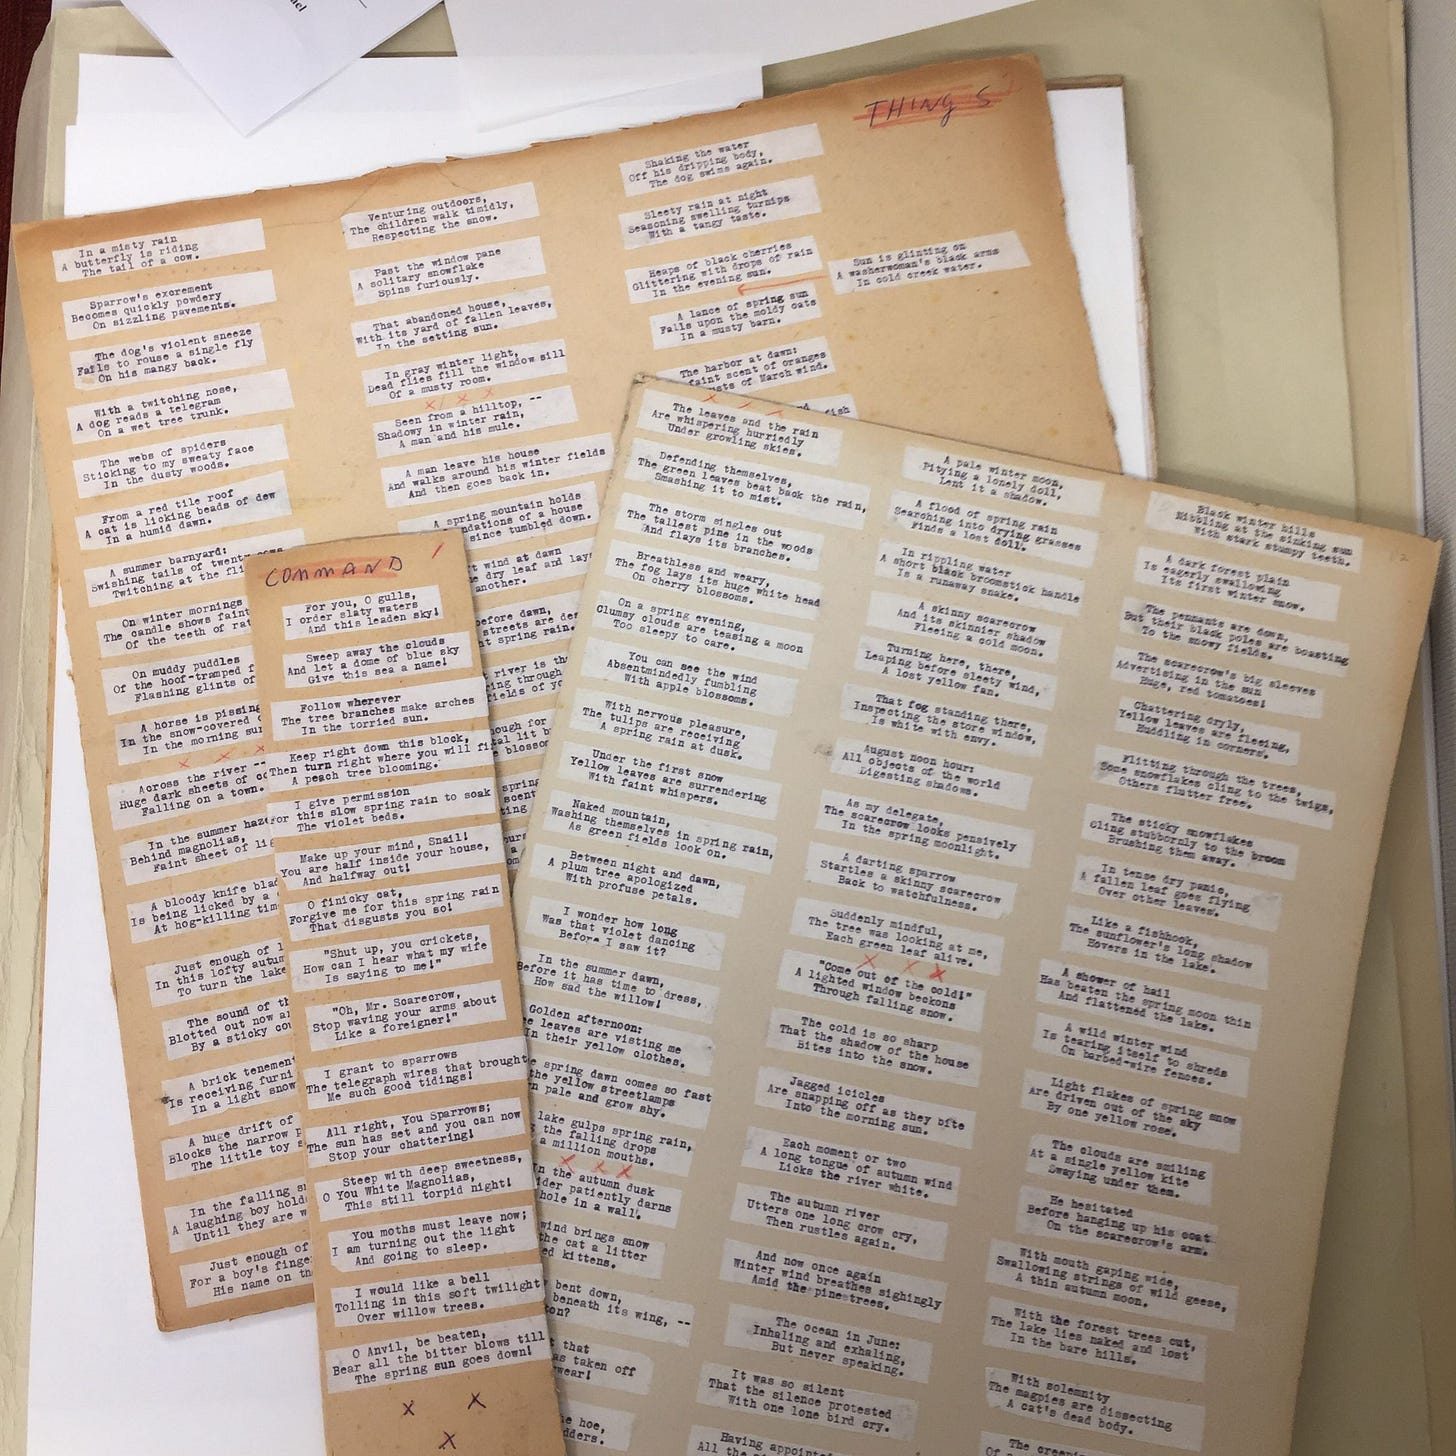 THINGS
In a misty rain
A butterfly is riding
The tail of a cow.
Sparrow's excrement
Becomes quickly powdery
On sizzling pavements.
The dog's violent sneeze
Fails to rouse a single fly
On his mangy back.
With a twitching nose,
A dog reads a telegram
On a wet tree trunk.
The webs of spiders
Sticking to my sweaty face
In the dusty woods.
From a red tile roof
A cat is licking beads of dew
In a humid dawn.
A summer barnyard:
Swishing tails of twenty cows
Twitching at the
On winter mornings
The candle shows faint
Of the teeth of
On muddy puddles
Of the hoof-tramped
Flashing glints of
A horse is pissing
In the snow-covered
In the morning
Across the river --
Huge dark sheets of
Falling on a town.
In the summer haze
Behind magnolias,
Faint sheet of
A bloody knife
Is being licked by a
At hog-killing
Just enough of
In this lofty
To turn the lake
The sound of
Blotted out now
By a sticky
A brick
Is receiving
In a light snow
A huge drift of
Blocks the narrow
The little toy
In the falling
A laughing boy
Until they are
Just enough of
For a boy's
His name on
Venturing outdoors,
The children walk timidly,
Respecting the snow.
Past the window pane
A solitary snowflake
Spins furiously.
That abandoned house,
With its yard of fallen leaves,
In the setting sun.
In gray winter light,
Dead flies fill the window sill
Of a musty room.
Seen from a hilltop, --
Shadowy in winter rain,
A man and his mule.
A man leave his house
And walks around his winter fields
And then goes back in.
A spring mountain holds
of a house
since tumbled down.
wind at dawn
dry leaf and lays
another.
before dawn,
streets are
spring rain.
river is
through
Shaking the water
Off his dripping body,
The dog swims again.
Sleety rain at night
Seasoning swelling turnips
With a tangy taste.
Heaps of black cherries
Glittering with drops of rain
In the evening sun.
A lance of spring sun
Falls upon the moldy oats
In a musty barn.
The harbor at dawn:
faint scent of oranges
of March wind.
fish
Sun is glinting on
A washerwoman's black arms
In cold creek water.
COMMAND
For you, O gulls,
I order slaty waters
And this leaden sky!
Sweep away the clouds
And let a dome of blue sky
Give this sea a name!
Follow wherever
The tree branches make arches
In the torried sun.
Keep right down this block,
Then turn right where you will
A peach tree blooming.
I give permission
For this slow spring rain to soak
The violet beds.
Make up your mind, Snail!
You are half inside your house,
And halfway out!
O finicky cat,
Forgive me for this spring rain
That disgusts you so!
"Shut up, you crickets,
How can I hear what my wife
Is saying to me!"
"Oh, Mr. Scarecrow,
Stop waving your arms about
Like a foreigner!"
I grant to sparrows
The telegraph wires that brought
Me such good tidings!
All right, You Sparrows;
The sun has set and you can now
Stop your chattering!
Steep with deep sweetness,
O You White Magnolias,
This still torpid night!
You moths must leave now;
I am turning out the light
And going to sleep.
I would like a bell
Tolling in this soft twilight
Over willow trees.
O Anvil, be beaten,
Bear all the bitter blows till
The spring sun goes down!
X X
X
The leaves and the rain
Are whispering hurriedly
Under growling skies.
Defending themselves,
The green leaves beat back the rain,
Smashing it to mist.
The storm singles out
The tallest pine in the woods
And flays its branches.
Breathless and weary,
The fog lays its huge white head
On cherry blossoms.
On a spring evening,
Clumsy clouds are teasing a moon
Too sleepy to care.
You can see the wind
Absentmindedly fumbling
With apple blossoms.
With nervous pleasure,
The tulips are receiving
A spring rain at dusk.
Under the first snow
Yellow leaves are surrendering
With faint whispers.
Naked mountain,
Washing themselves in spring rain,
As green fields look on.
Between night and dawn,
A plum tree apologized
With profuse petals.
I wonder how long
Was that violet dancing
Before I saw it?
In the summer dawn,
Before it has time to dress,
How sad the willow!
Golden afternoon:
leaves are visting me
In their yellow clothes.
spring dawn comes so fast
the yellow streetlamps
pale and grow shy.
lake gulps spring rain,
the falling drops
a million mouths.
In the autumn dusk
patiently darns
hole in a wall.
wind brings snow
the cat a litter
kittens.
bent down,
beneath its wing, --
that
taken off
hoe,
A pale winter moon,
Pitying a lonely doll,
Lent it a shadow.
A flood of spring rain
Searching into drying grasses
Finds a lost doll.
In rippling water
A short black broomstick handle
Is a runaway snake.
A skinny scarecrow
And its skinnier shadow
Fleeing a cold moon.
Turning here, there,
Leaping before sleety wind,
A lost yellow fan.
That fog standing there,
Inspecting the store window,
Is white with envy.
August noon hour:
All objects of the world
Digesting shadows.
As my delegate,
The scarecrow looks pensively
In the spring moonlight.
A darting sparrow
Startles a skinny scarecrow
Back to watchfulness.
Suddenly mindful,
The tree was looking at me,
Each green leaf alive.
"Come out of the cold!"
A lighted window beckons
Through falling snow.
The cold is so sharp
That the shadow of the house
Bites into the snow.
Jagged icicles
Are snapping off as they bite
Into the morning sun.
Each moment or two
A long tongue of autumn wind
Licks the river white.
The autumn river
Utters one long crow cry,
Then rustles again.
And now once again
Winter wind breathes sighingly
Amid the pine trees.
The ocean in June:
Inhaling and exhaling,
But never speaking.
It was so silent
That the silence protested
With one lone bird cry.
Having appointed
All the
Black winter hills
Nibbling at the sinking sun
With stark stumpy teeth.
A dark forest plain
Is eagerly swallowing
Its first winter snow.
The pennants are down,
But their black poles are boasting
To the snowy fields.
The scarecrow's big sleeves
Advertising in the sun
Huge, red tomatoes!
Chattering dryly,
Yellow leaves are fleeing,
Huddling in corners.
Flitting through the trees,
Some snowflakes cling to the twigs,
Others flutter free.
The sticky snowflakes
Cling stubbornly to the broom
Brushing them away.
In tense dry panic,
A fallen leaf goes flying
Over other leaves.
Like a fishhook,
The sunflower's long shadow
Hovers in the lake.
A shower of hail
Has beaten the spring moon thin
And flattened the lake.
A wild winter wind
Is tearing itself to shreds
On barbed-wire fences.
Light flakes of spring snow
Are driven out of the sky
By one yellow rose.
The clouds are smiling
At a single yellow kite
Swaying under them.
He hesitated
Before hanging up his coat
On the scarecrow's arm.
With mouth gaping wide,
Swallowing strings of wild geese,
A thin autumn moon.
With the forest trees cut,
The lake lies naked and lost
In the bare hills.
With solemnity
The magpies are dissecting
A cat's dead body.